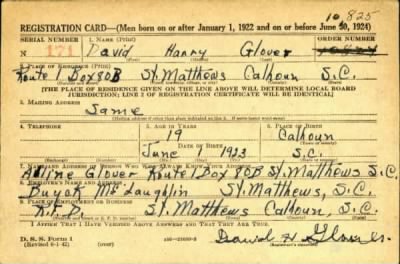 10,825
REGISTRATION CARD—(Men born on or after January 1, 1922 and on or before June 30, 1924)
SERIAL NUMBER 1. NAME (Print) ORDER NUMBER
N 171 David Harry Glover
(First) (Middle) (Last)
2. PLACE OF RESIDENCE (Print)
Route 1 Box 80B St. Matthews Calhoun S.C.
[THE PLACE OF RESIDENCE GIVEN ON THE LINE ABOVE WILL DETERMINE LOCAL BOARD
JURISDICTION; LINE 2 OF REGISTRATION CERTIFICATE WILL BE IDENTICAL]
3. MAILING ADDRESS
Same
[Mailing address if other than place indicated on line 2. If same insert word same]
4. TELEPHONE 5. AGE IN YEARS 6. PLACE OF BIRTH
19 Calhoun
DATE OF BIRTH
June 1923 S.C.
(Exchange) (Number) (Mo.) (Day) (Yr.) (State or country)
7. NAME AND ADDRESS OF PERSON WHO WILL ALWAYS KNOW YOUR ADDRESS
Glover Route 1 Box 80B St. Matthews S.C.
8. EMPLOYER'S NAME AND ADDRESS
McLaughlin St. Matthews, S.C.
9. PLACE OF EMPLOYMENT OR BUSINESS
R.F.D. St. Matthews Calhoun, S.C.
I AFFIRM THAT I HAVE VERIFIED ABOVE ANSWERS AND THAT THEY ARE TRUE.
D. S. S. Form 1 David H Glover